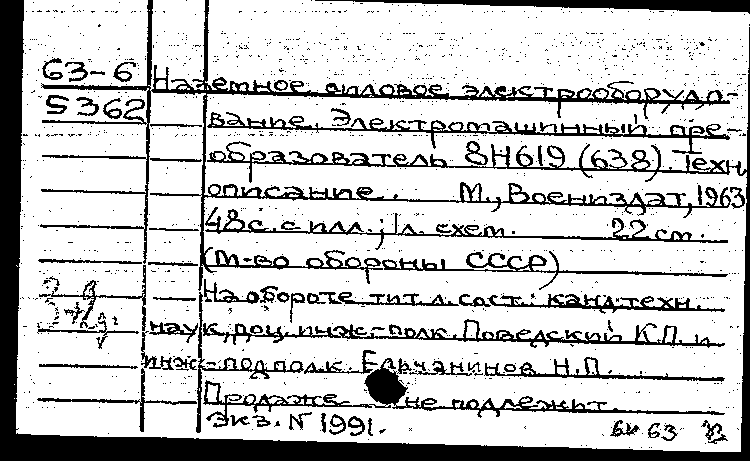 63-6 Наземное силовое электрооборудо-
5362 вание. Электромашинный пре-
образователь 8Н619 (638). Техн.
описание. М., Воениздат, 1963
48 с. с илл.; 1 л. схем. 22 см.
(М-во обороны СССР)
На обороте тит. л. сост.: канд. техн.
наук, доц. инж.-полк. Поведский К.П. и
инж.-подполк. Н.П.
Продаже не подлежит.
Экз. N 1991.
63